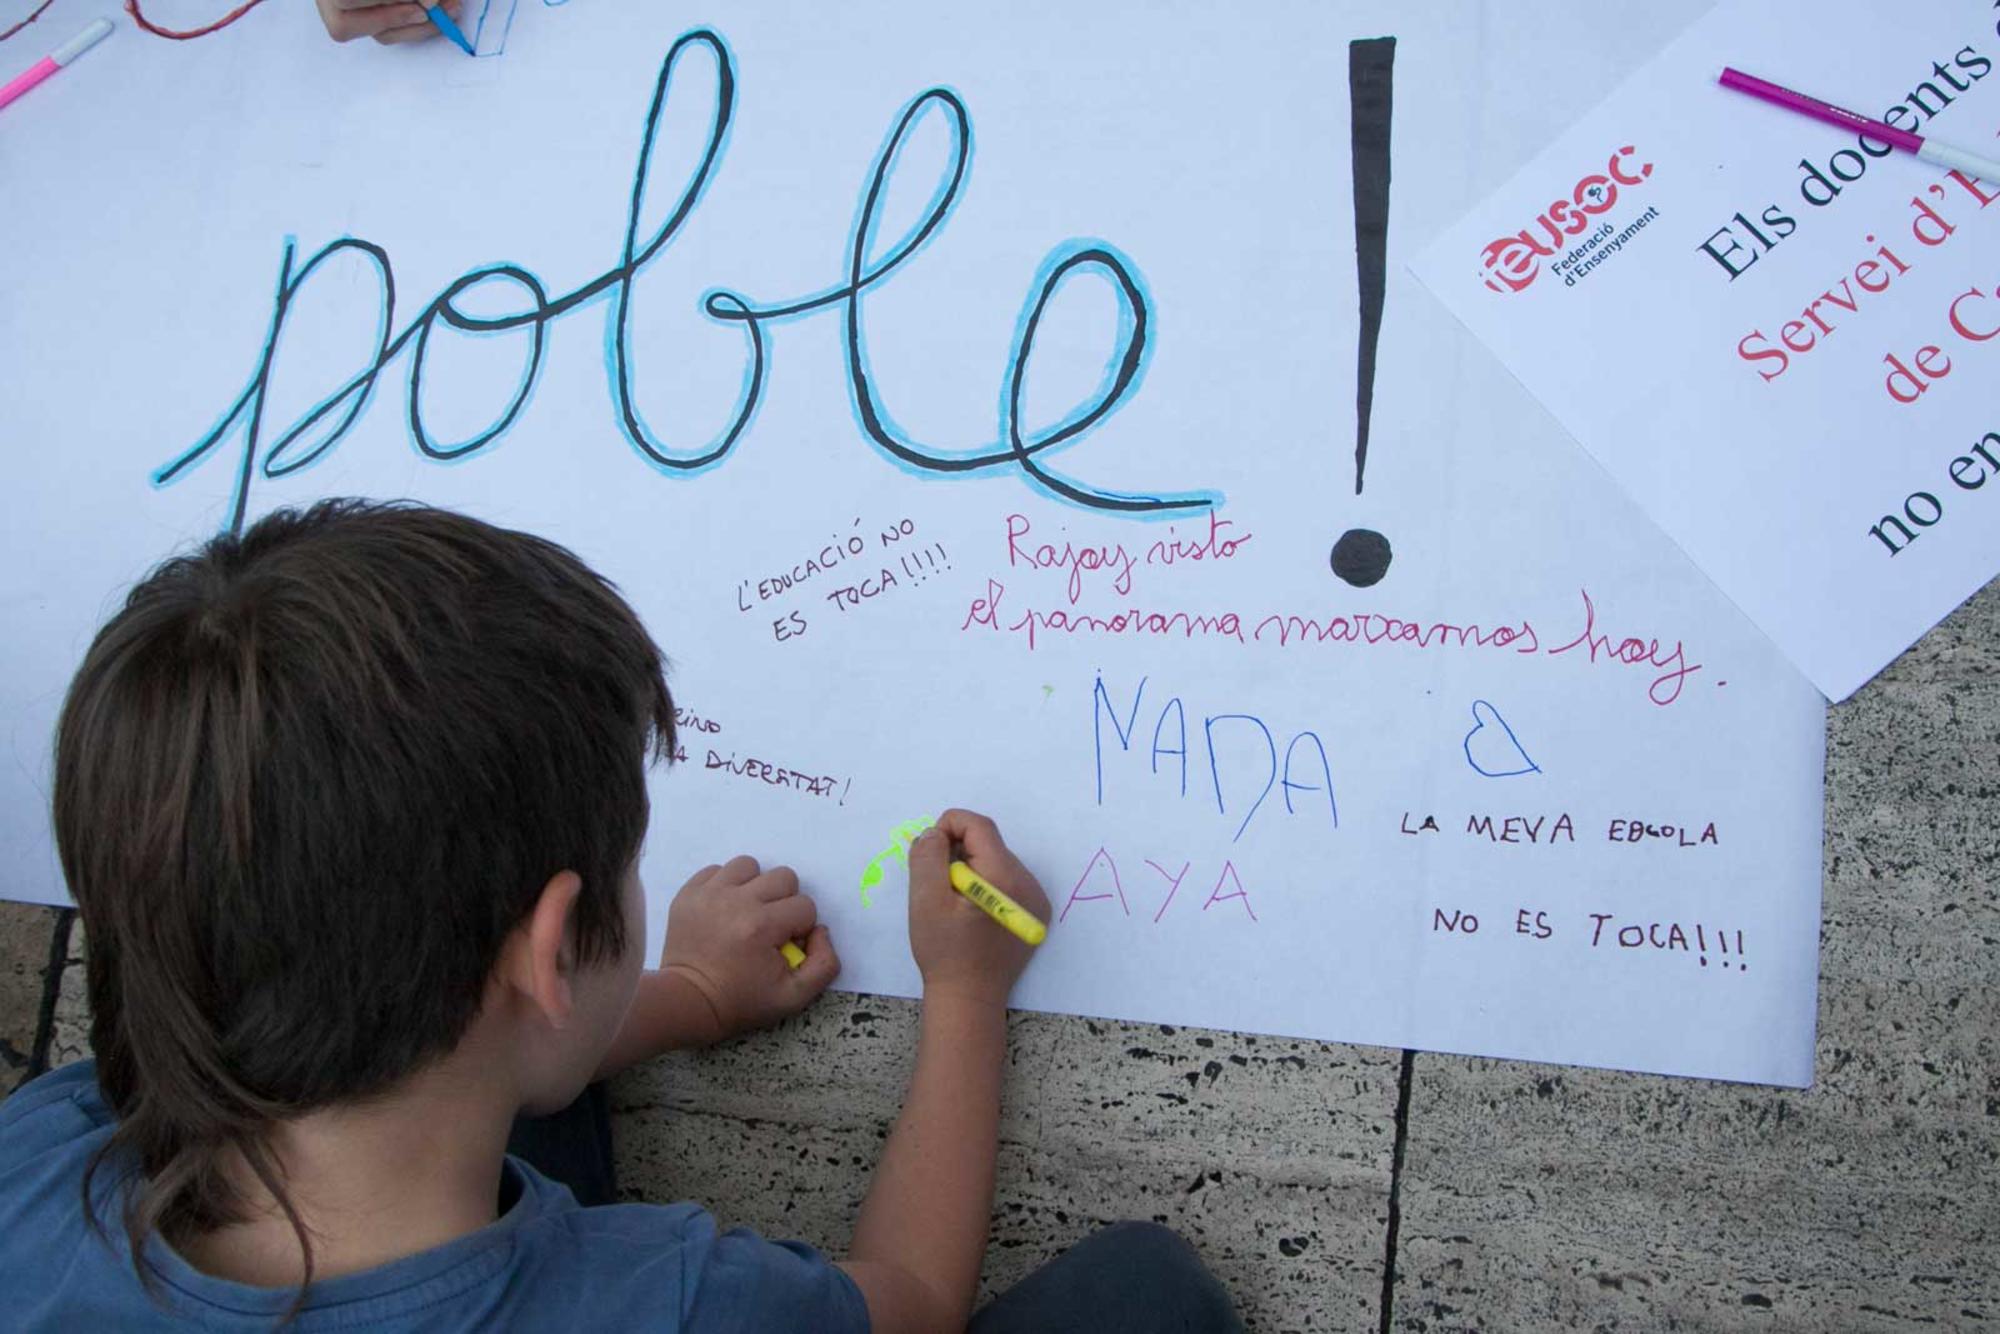 poble!
L'EDUCACIÓ NO
ES TOCA!!!!
Rajoy visto
el panorama marxamos hoy.
DIVERSTAT!
NADA
AYA
LA MEVA ESCOLA
NO ES TOCA!!!
USOC
Federació
d'Ensenyament
Els docents
Servei d'
de
no en